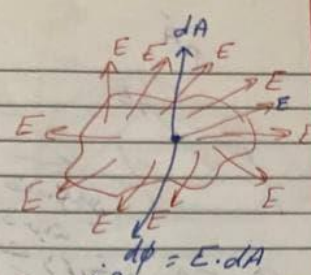 dA
E E E
E
E
E E
E E E E
dφ = E·dA